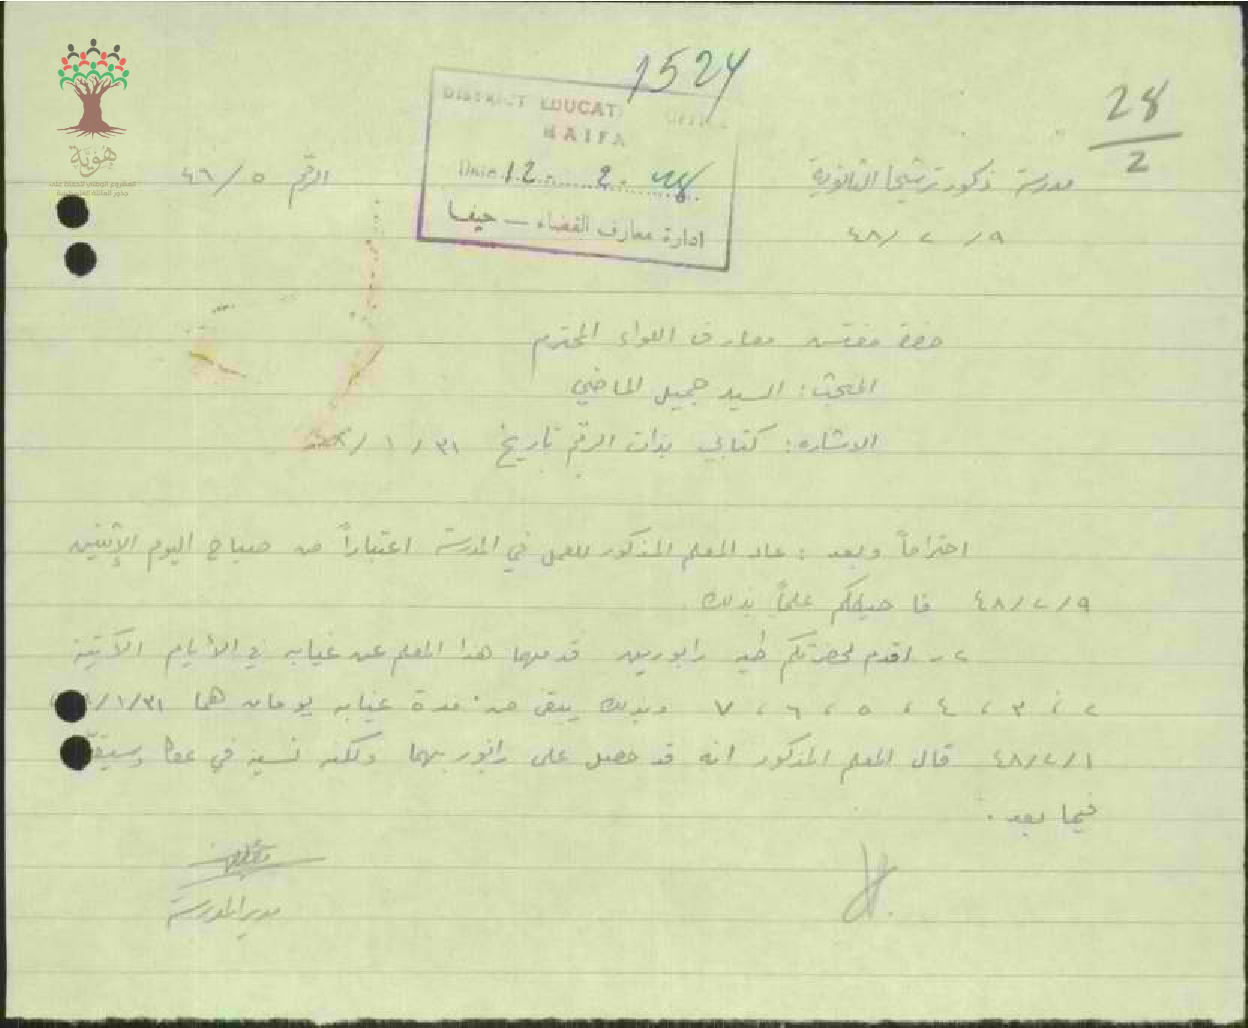 1524
28
2
DISTRICT EDUCATI OFFICE
HAIFA
Date 12. 2. 48
ادارة معارف القضاء — حيفا
مدرسة ذكور ترشيحا الثانوية
الرقم ٥/٤٦
٩/٢/٤٨
هوية
المشروع الوطني للحفاظ على
جذور العائلة الفلسطينية
حضرة مفتش معارف اللواء المحترم
المبحث: السيد جميل الماضي
الاشاره: كتابي بذات الرقم تاريخ ٣١/١/
احتراماً وبعد: عاد المعلم المذكور للعمل في المدرسة اعتباراً من صباح اليوم الإثنين
٩/٢/٤٨ فاحيطكم علماً بذلك.
٢- اقدم لحضرتكم طيه رابورين قدمهما هذا المعلم عن غيابه في الأيام الآتية
٢، ٣، ٤، ٥، ٦، ٧ وبذلك يبقى من مدة غيابه يومان هما ٣١/١/
١/٢/٤٨ قال المعلم المذكور انه قد حصل على رابور بهما ولكنه نسيه في عكا
فيما بعد.
مدير المدرسة